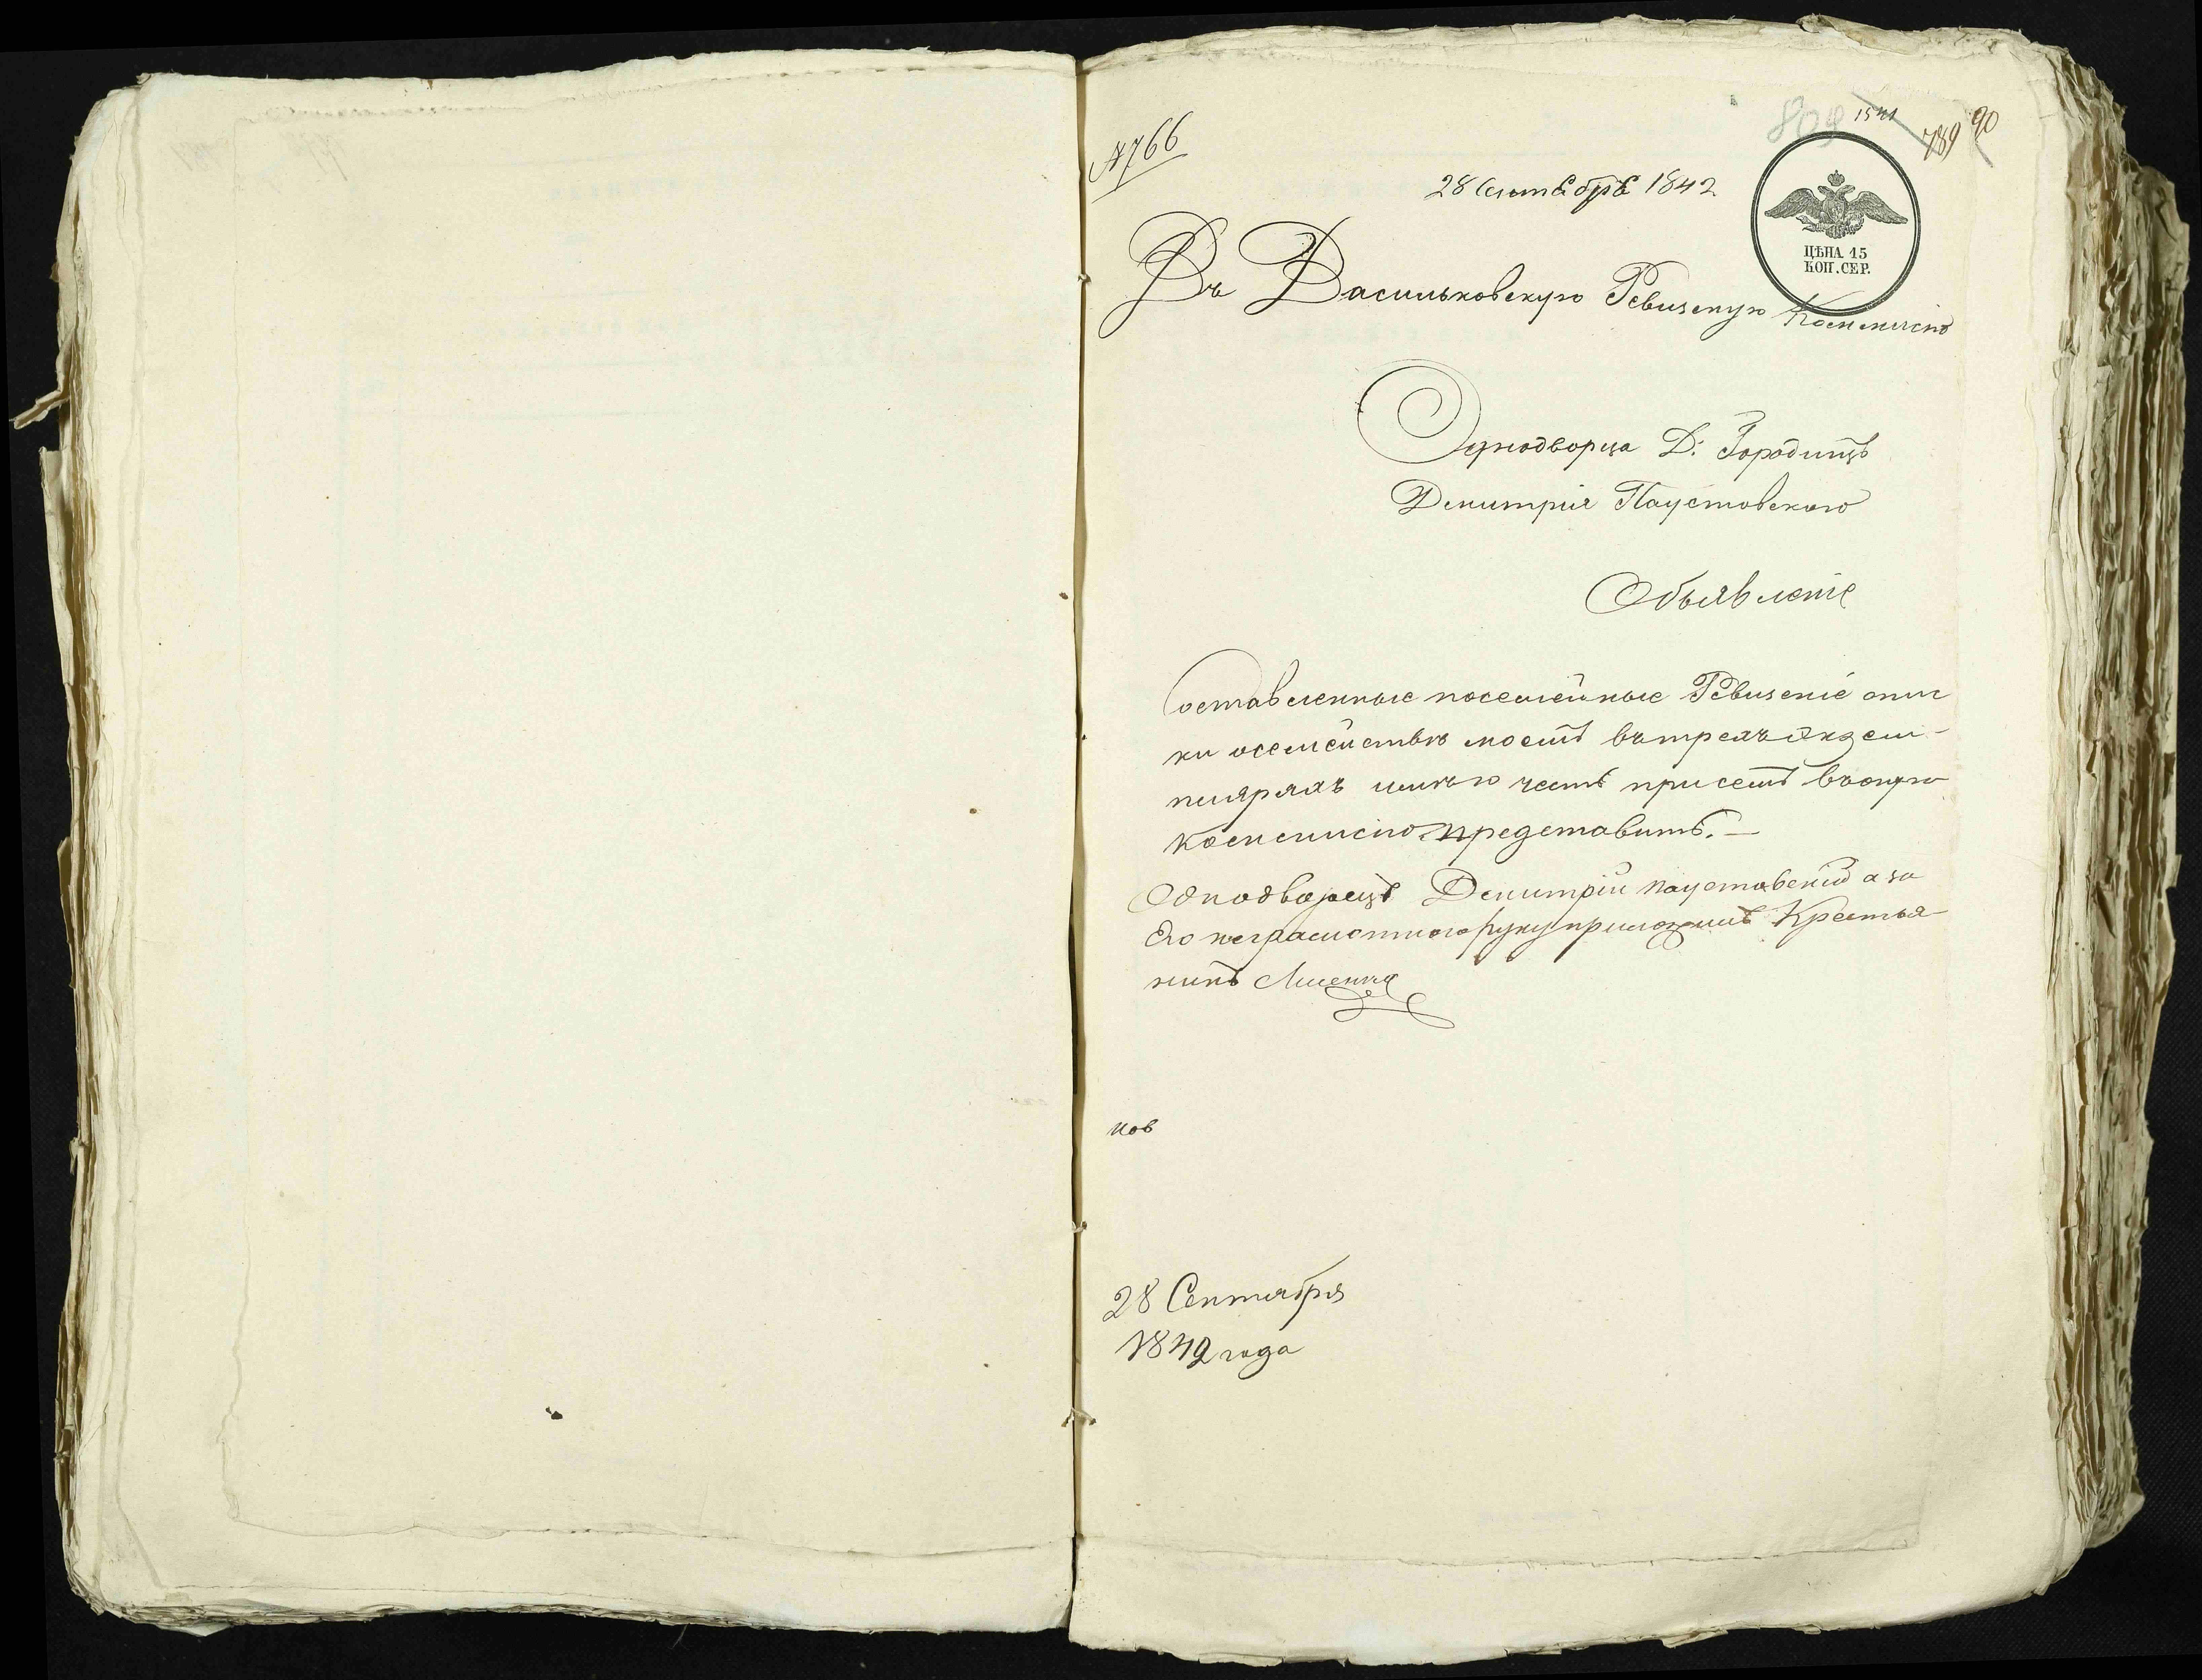 809 1541
789 90
№ 766
28 Сентебре 1842
ЦѢНА 15
КОП. СЕР.
Въ Васильковскую Ревизскую Коммисію
Однодворца Д: Городищъ
Дмитрія Паустовского
Объявленіе
Составленные посемейные Ревизскіе спис
ки осемействѣ моемъ вътрехъ экзем-
плярахъ имѣю честь присемъ въоную
коммисію представить. —
Однодворецъ Дмитрій Паустовскій а за
Его неграмотного руку приложилъ Крестья-
нинъ
нов
28 Сентября
1842 года